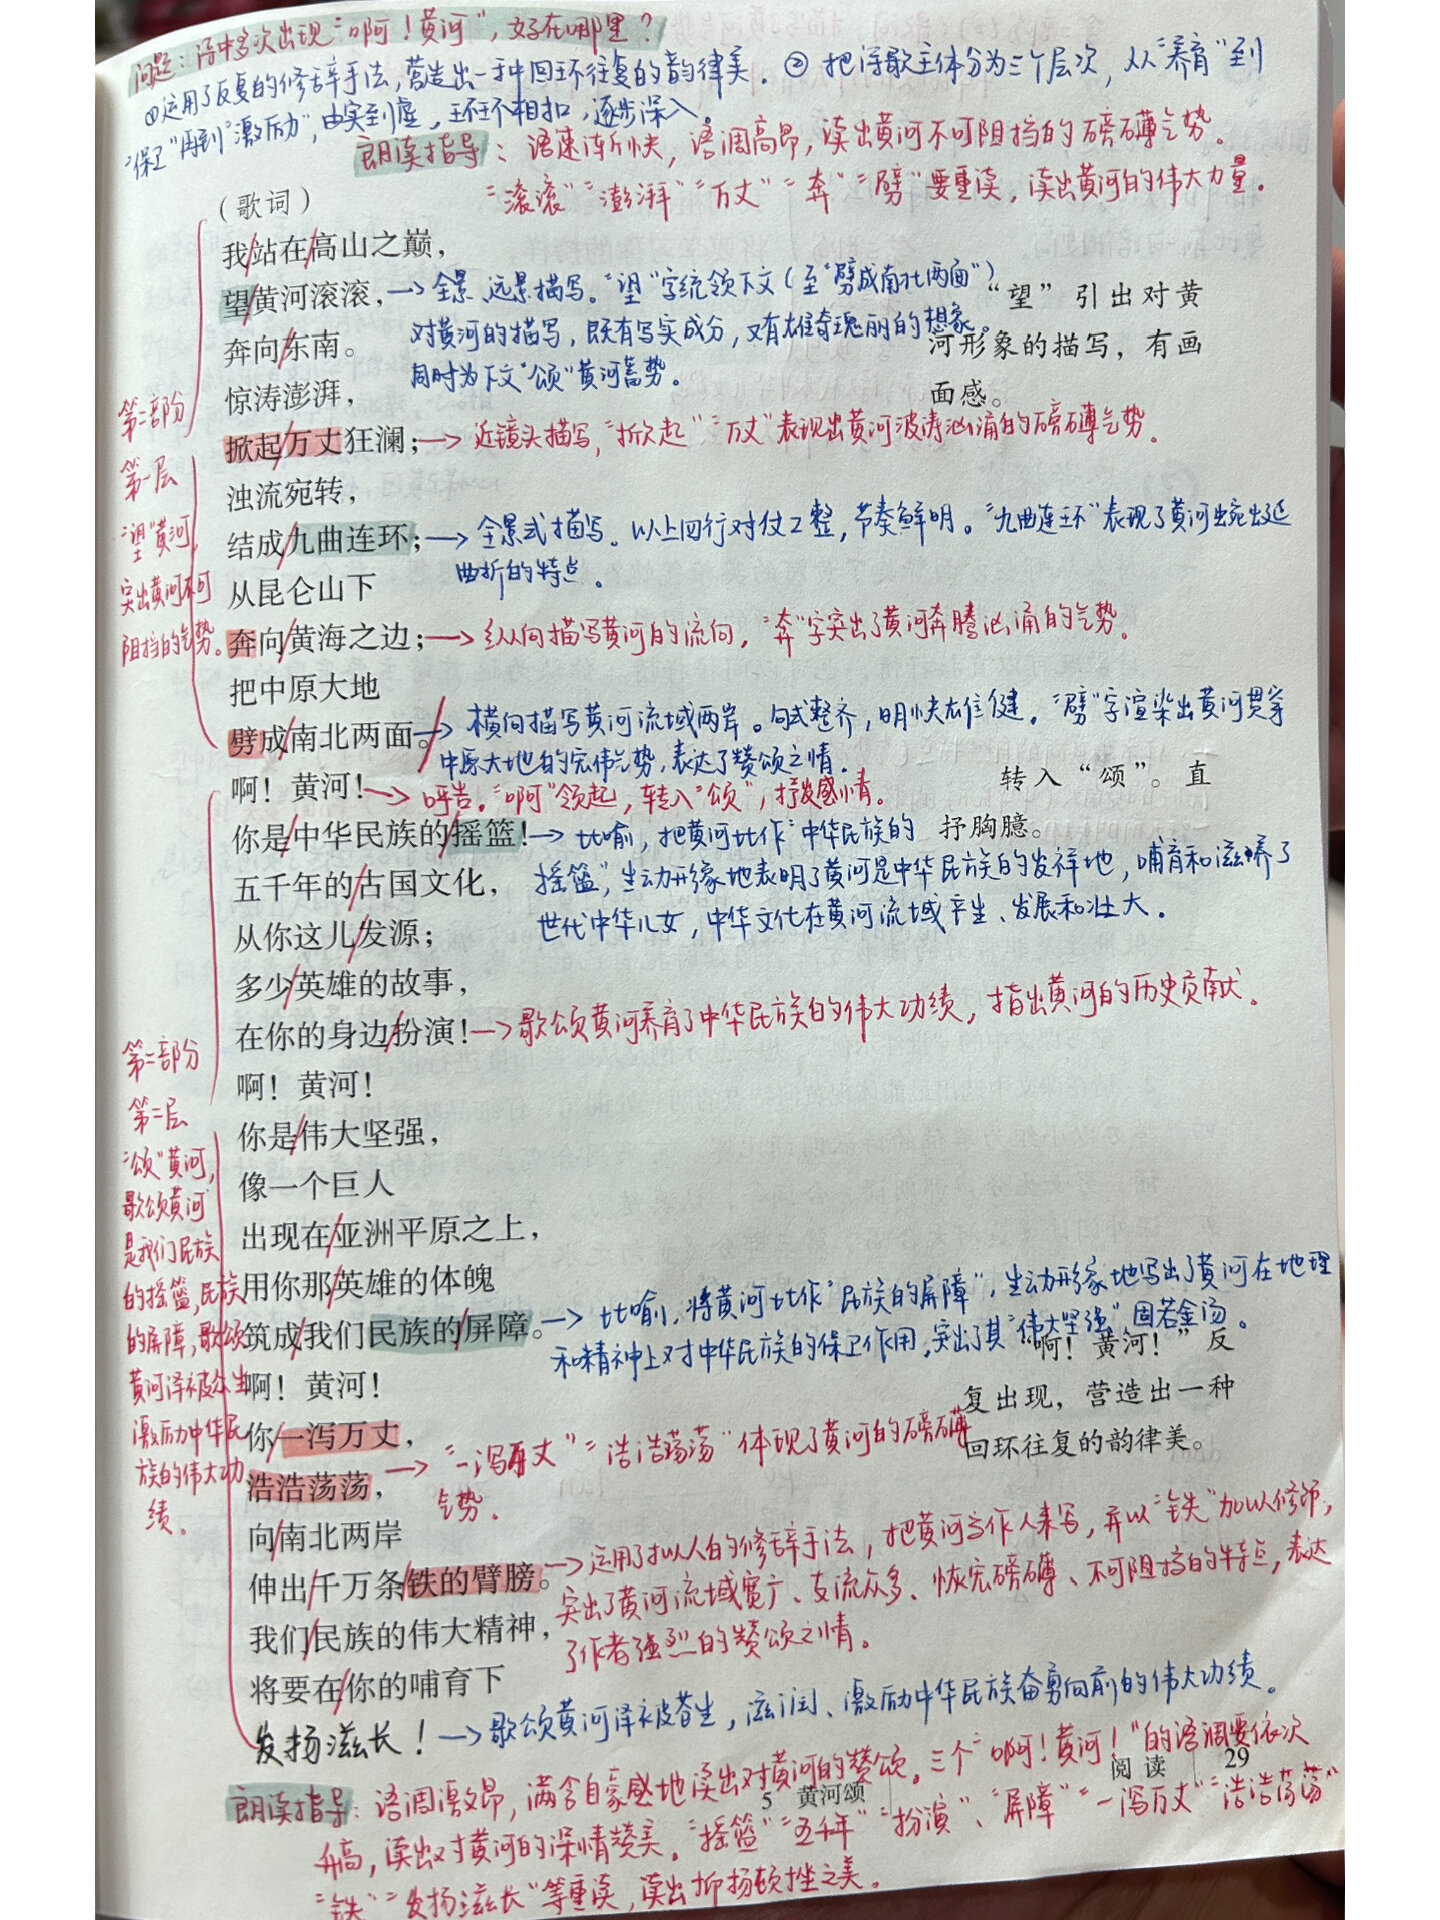 问题：诗中多次出现“啊！黄河”，好在哪里？
①运用了反复的修辞手法，营造出一种回环往复的韵律美。②把诗歌主体分为三个层次，从“养育”到
“保卫”再到“激励”，由实到虚，环环相扣，逐步深入。
朗读指导：语速渐快，语调高昂，读出黄河不可阻挡的磅礴气势。
“滚滚”“澎湃”“万丈”“奔”“劈”要重读，读出黄河的伟大力量。
（歌词）
我/站在/高山之巅，
望/黄河滚滚，→全景、远景描写。“望”字统领下文（至“劈成南北两面”）
对黄河的描写，既有写实成分，又有雄奇瑰丽的想象。
同时为下文“颂”黄河蓄势。
“望”引出对黄
河形象的描写，有画
面感。
奔向/东南。
惊涛澎湃，
掀起/万丈狂澜；→近镜头描写，“掀起”“万丈”表现出黄河波涛汹涌的磅礴气势。
浊流宛转，
结成/九曲连环；→全景式描写。以上四行对仗工整，节奏鲜明。“九曲连环”表现了黄河蜿蜒
曲折的特点。
从昆仑山下
奔向/黄海之边；→纵向描写黄河的流向，“奔”字突出了黄河奔腾汹涌的气势。
把中原大地
劈成/南北两面。→横向描写黄河流域两岸。句式整齐，明快雄健。“劈”字渲染出黄河贯穿
中原大地的宏伟气势，表达了赞颂之情。
第二部分
第一层
“望”黄河，
突出黄河不可
阻挡的气势。
啊！黄河！→呼告。“啊”领起，转入“颂”，抒发感情。
转入“颂”。直
抒胸臆。
你是/中华民族的/摇篮！→比喻，把黄河比作“中华民族的
摇篮”，生动形象地表明了黄河是中华民族的发祥地，哺育和滋养了
世代中华儿女，中华文化在黄河流域产生、发展和壮大。
五千年的/古国文化，
从你这儿/发源；
多少/英雄的故事，
在你的身边/扮演！→歌颂黄河养育了中华民族的伟大功绩，指出黄河的历史贡献。
啊！黄河！
你是/伟大坚强，
像一个巨人
出现在/亚洲平原之上，
用你那/英雄的体魄
筑成/我们民族的/屏障。→比喻，将黄河比作“民族的屏障”，生动形象地写出了黄河在地理
和精神上对中华民族的保卫作用，突出了其“伟大坚强”，固若金汤。
“啊！黄河！”反
复出现，营造出一种
回环往复的韵律美。
啊！黄河！
你/一泻万丈，
浩浩荡荡，→“一泻万丈”“浩浩荡荡”体现了黄河的磅礴
气势。
向/南北两岸
伸出/千万条/铁的臂膀。→运用了拟人的修辞手法，把黄河当作人来写，并以“铁”加以修饰，
突出了黄河流域宽广、支流众多、恢宏磅礴、不可阻挡的特点，表达
了作者强烈的赞颂之情。
我们/民族的伟大精神，
将要在/你的哺育下
发扬滋长！→歌颂黄河泽被苍生，滋润、激励中华民族奋勇向前的伟大功绩。
第二部分
第二层
“颂”黄河，
歌颂黄河
是我们民族
的摇篮，民族
的屏障，歌颂
黄河泽被众生
激励中华民
族的伟大功
绩。
朗读指导：语调激昂，满含自豪感地读出对黄河的赞颂。三个“啊！黄河！”的语调要依次
升高，读出对黄河的深情赞美。“摇篮”“五千年”“扮演”、“屏障”“一泻万丈”“浩浩荡荡”
“铁”“发扬滋长”等重读，读出抑扬顿挫之美。
阅读 29
5 黄河颂